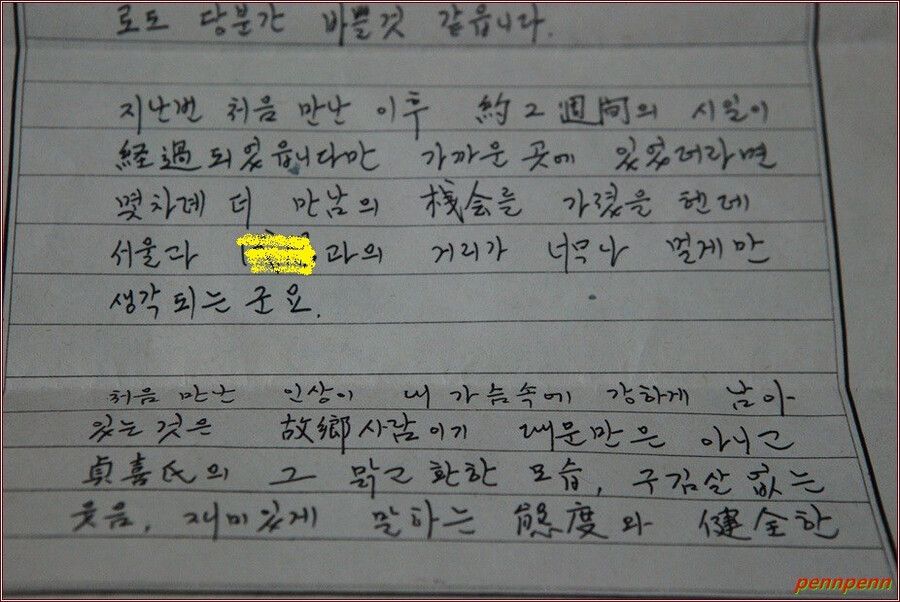 로도 당분간 바쁠것 같읍니다.
지난번 처음 만난 이후 約 2 週間의 시일이
経過되었읍니다만 가까운 곳에 있었더라면
몇차례 더 만남의 機会를 가졌을 텐데
서울과 과의 거리가 너무나 멀게만
생각되는 군요.
처음 만난 인상이 내 가슴속에 강하게 남아
있는 것은 故鄕사람이기 때문만은 아니고
貞喜氏의 그 맑고 환한 모습, 구김살 없는
웃음, 재미있게 말하는 態度와 健全한
pennpenn